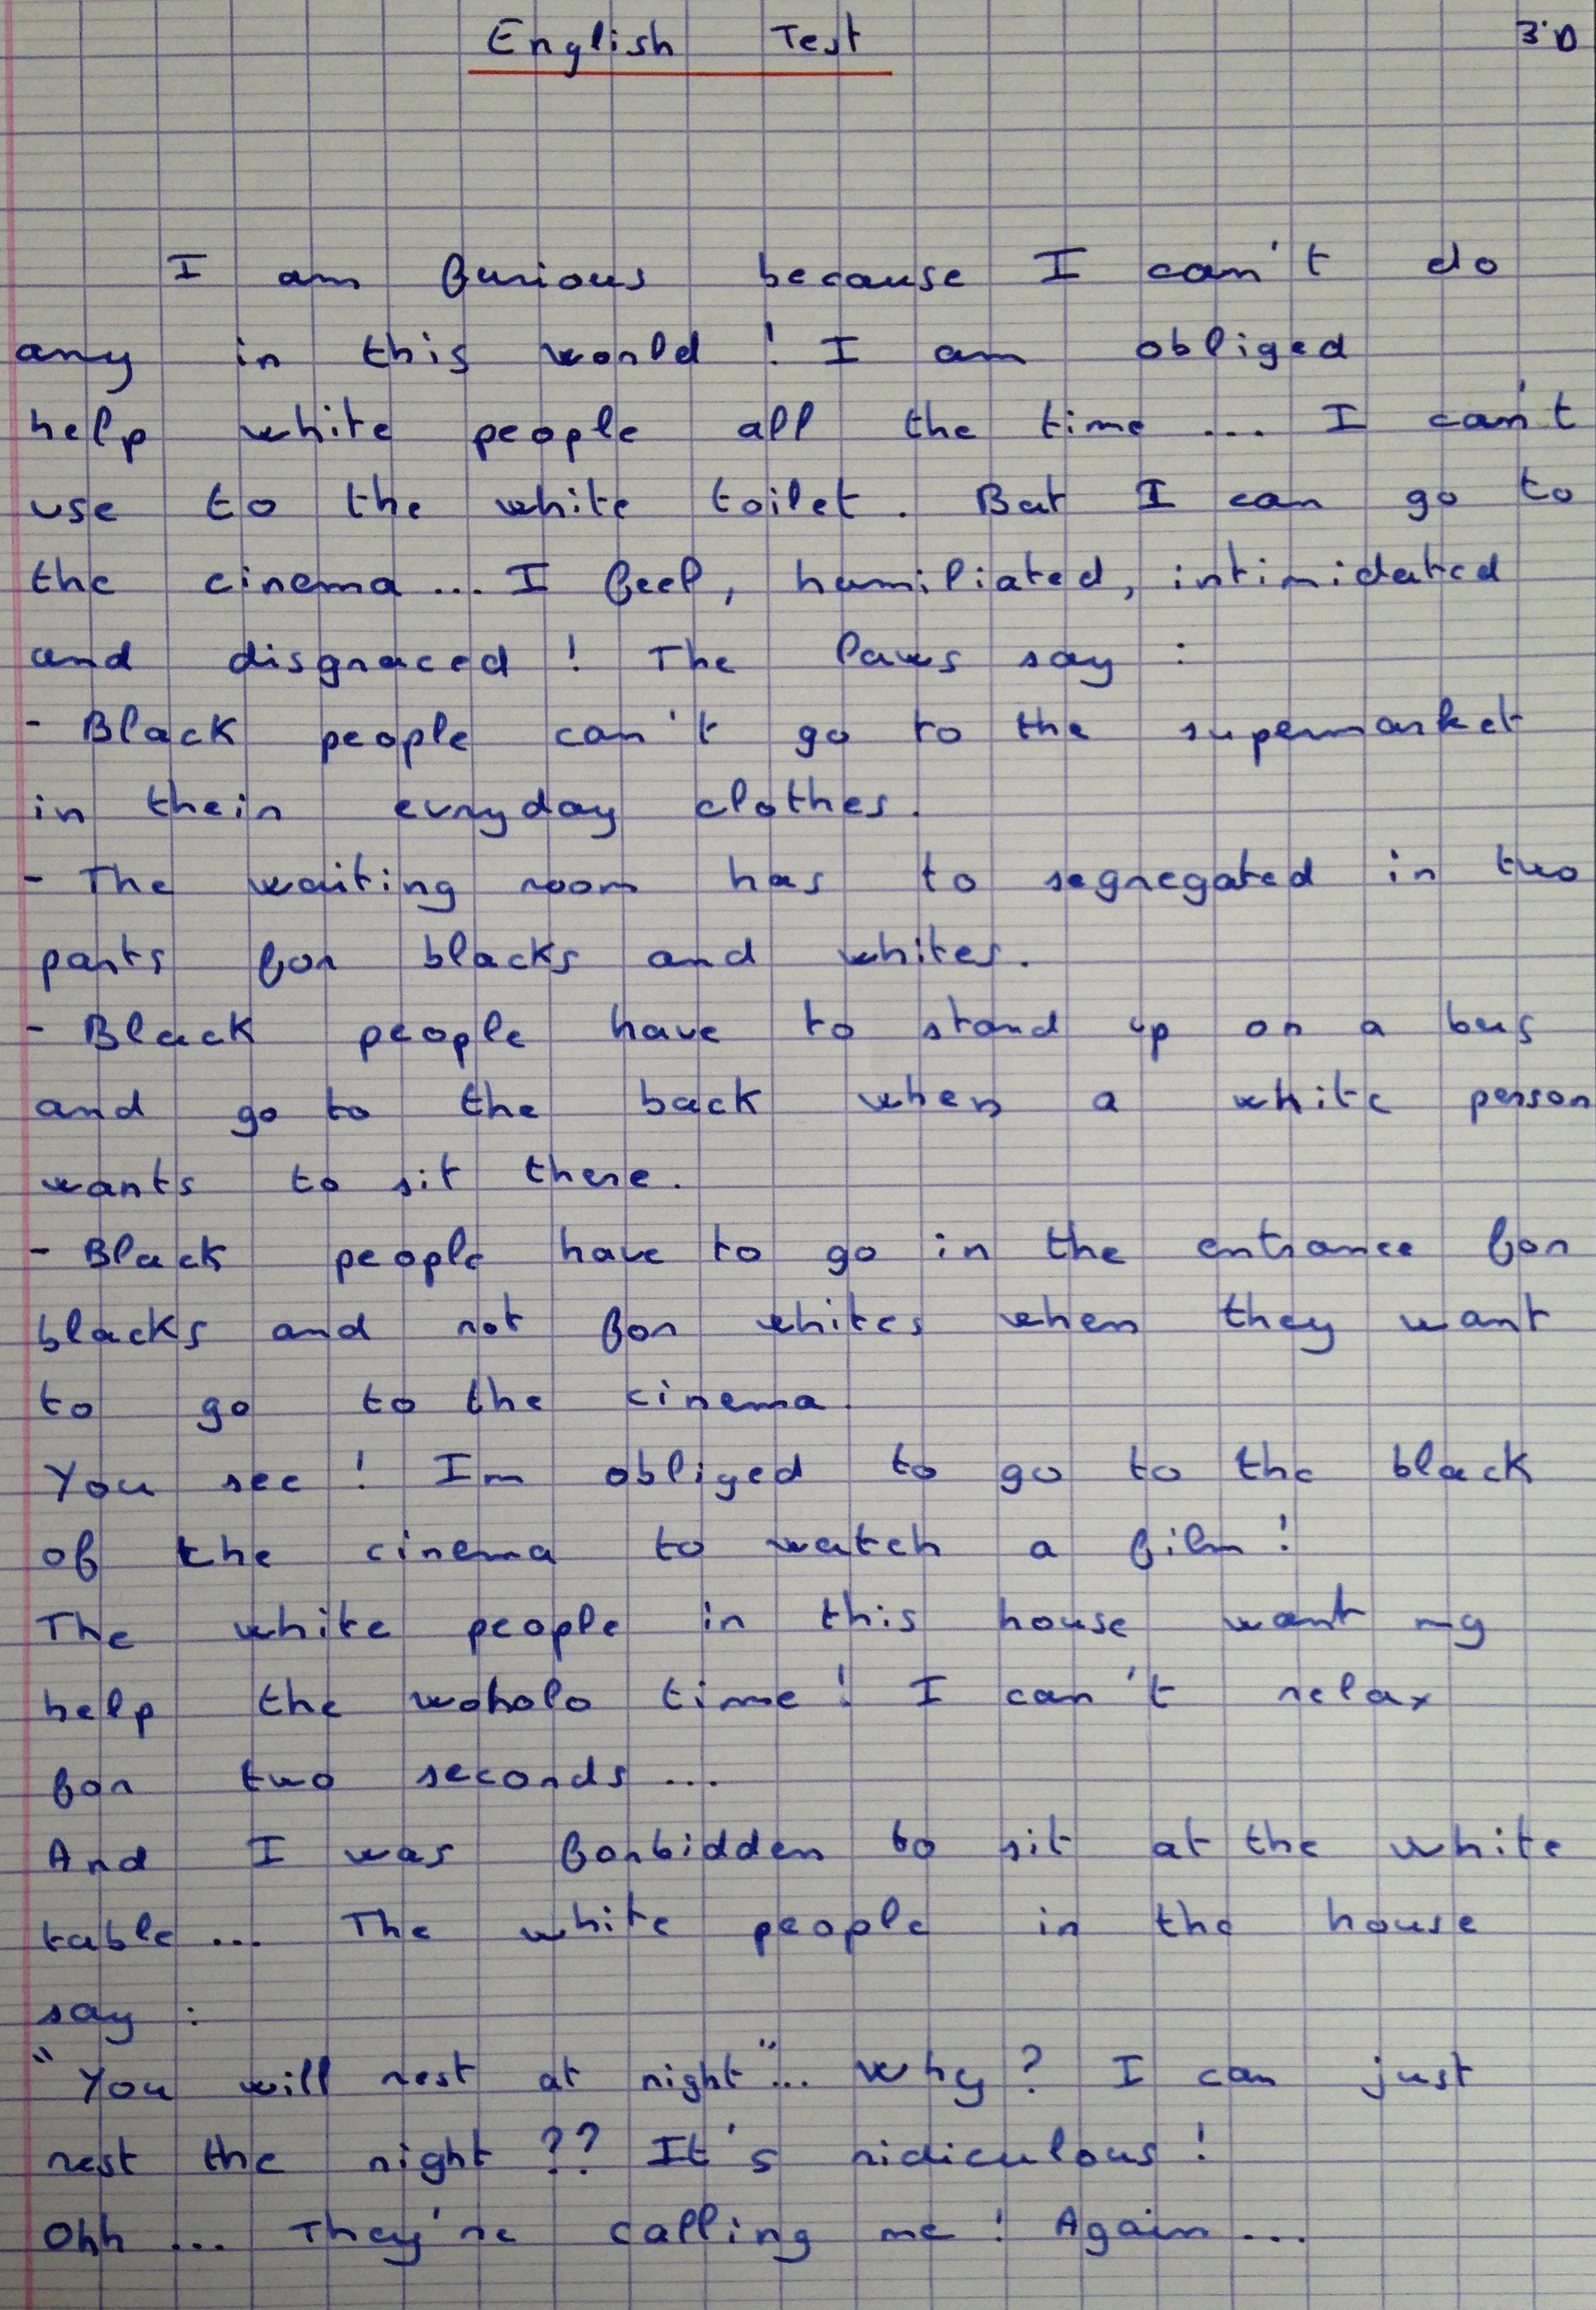 English Test 3'D
I am furious because I can't do
any in this world ! I am obliged
help white people all the time ... I can't
use to the white toilet . But I can go to
the cinema ... I feel, humiliated, intimidated
and disgraced ! The laws say :
- Black people can't go to the supermarket
in their evryday clothes.
- The waiting room has to segregated in two
parts for blacks and whites.
- Black people have to stand up on a bus
and go to the back when a white person
wants to sit there.
- Black people have to go in the entrance for
blacks and not for whites when they want
to go to the cinema.
You see ! Im obliged to go to the black
of the cinema to watch a film !
The white people in this house want my
help the woholo time ! I can't relax
for two seconds ...
And I was forbidden to sit at the white
table ... The white people in the house
say :
"You will rest at night"... Why ? I can just
rest the night ?? It's ridiculous !
Ohh ... They're calling me ! Again ...